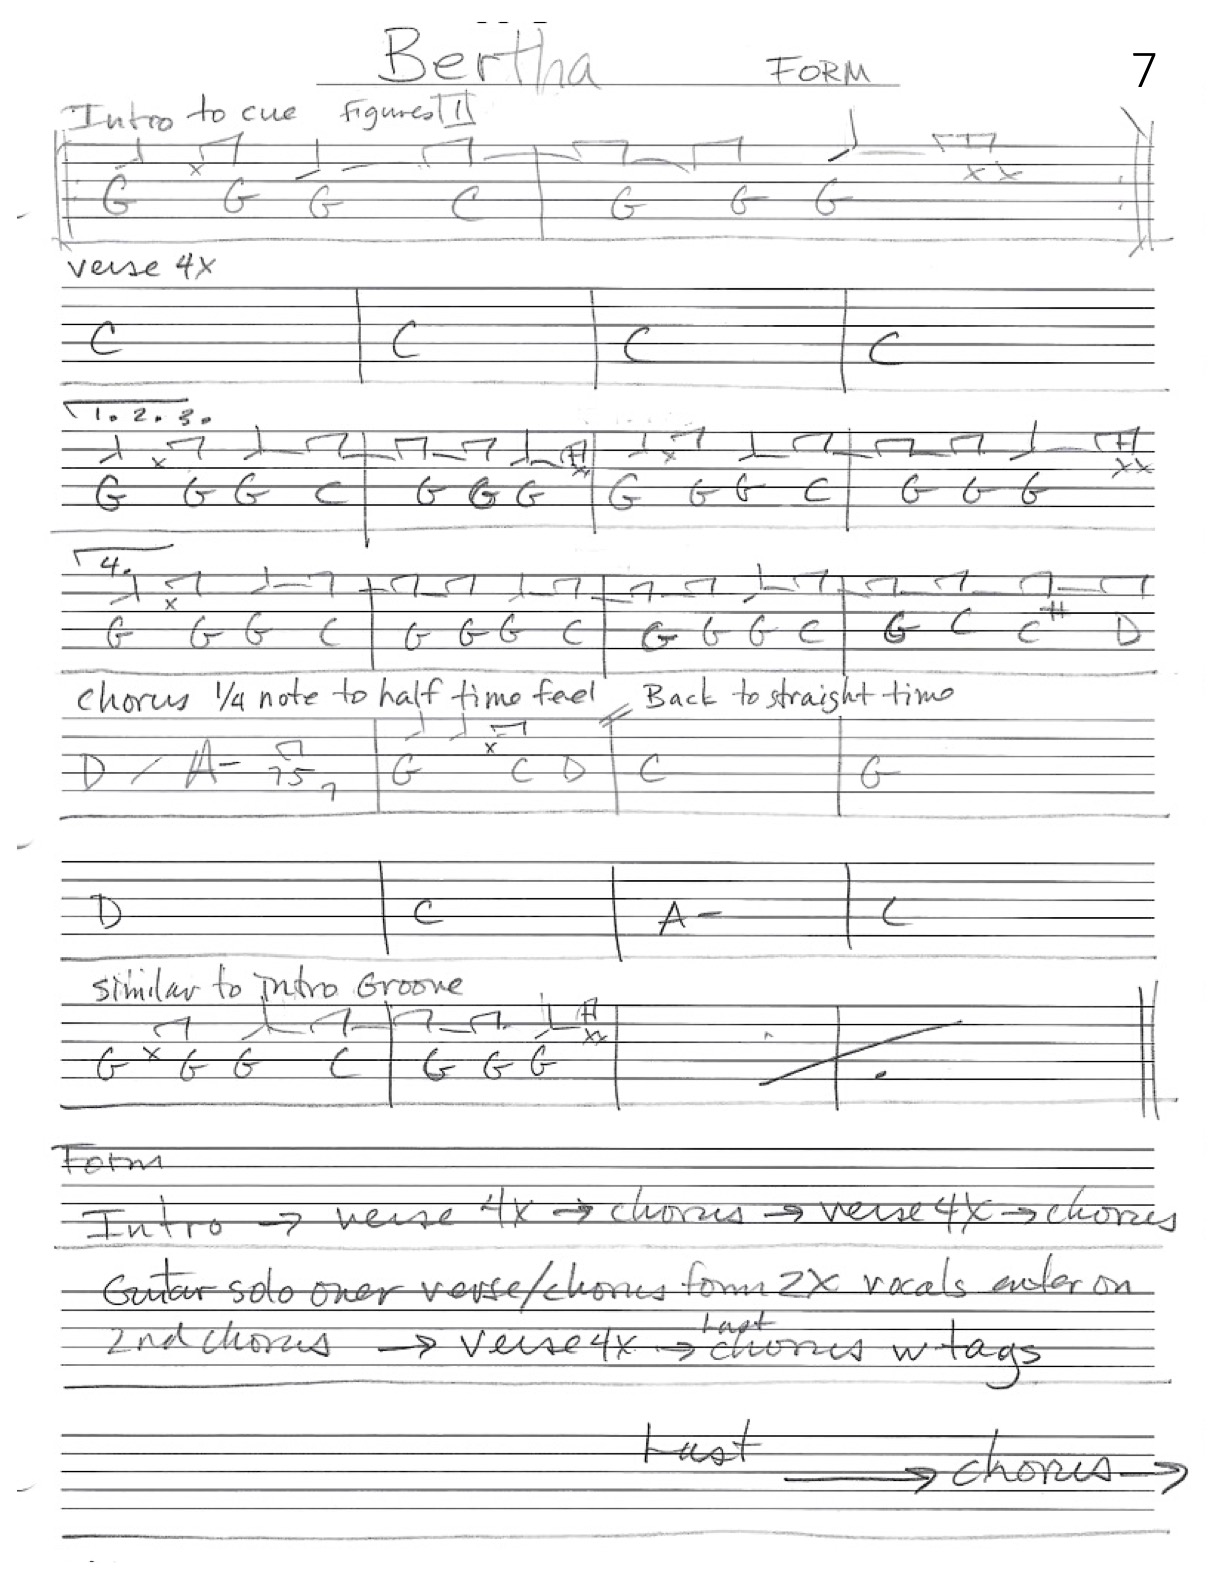 Bertha FORM 7
Intro to cue figures II
G G G C G G G
verse 4X
C C C C
1. 2. 3.
G G G C G G G G G G C G G G
4.
G G G C G G G C G G G C G C C# D
Chorus 1/4 note to half time feel // Back to straight time
D / A- G C D C G
D C A- C
similar to intro Groove
G G G C G G G
Form
Intro → verse 4X → chorus → verse 4X → chorus
Guitar solo over verse/chorus form 2X vocals enter on
2nd chorus → verse 4X → Last chorus w tags
Last → chorus →